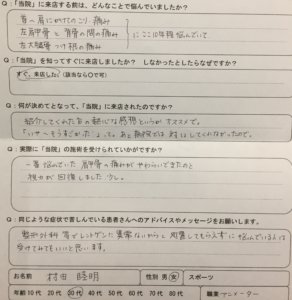 Q：「当院」に来店する前は、どんなことで悩んでいましたか？
首〜肩にかけてのこり・痛み
左肩甲骨と背骨の間の痛み
左大腿骨つけ根の痛み
ここ10年程悩んでいて
Q：「当院」を知ってすぐに来店しましたか？ しなかったとしたらなぜですか？
すぐ、来店した（該当なら〇で可）
Q：何が決めてとなって、「当院」に来店されたのですか？
紹介してくれた方の熱心な感想というかオススメで。
あと病院では対応してくれなかったので。
Q：実際に「当院」の施術を受けられていかがですか？
一番悩んでいた肩甲骨の痛みがやわらいできたのと
視力が回復しました少し。
Q：同じような症状で苦しんでいる患者さんへのアドバイスやメッセージをお願いします。
整形外科等でレントゲンに異常ないからと処置してもらえずに悩んでいる人は
受けてみてもいいと思います。
お名前 村田 睦明 性別 男 女 スポーツ
年齢 10代 20代 30代 40代 50代 60代 70代 80代 職業